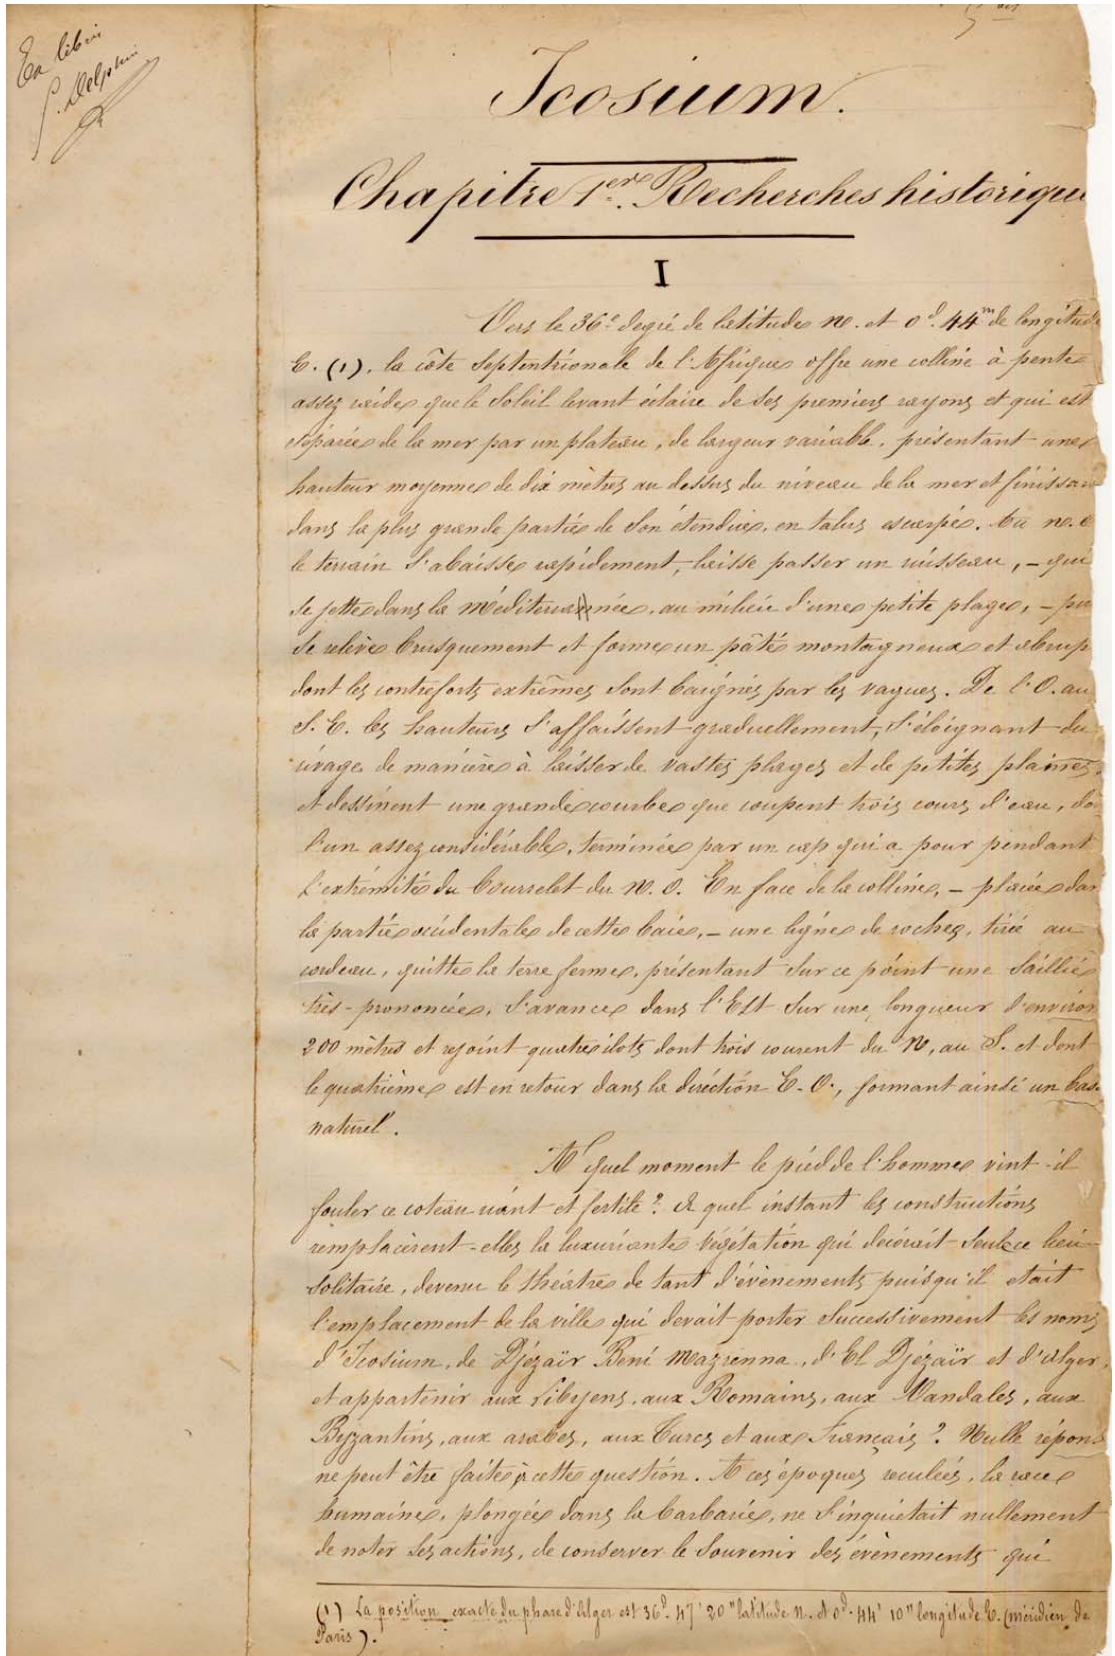 Ex libris
G. Delphin
Icosium.
Chapitre 1er. Recherches historique
I
Vers le 36e degré de latitude N. et 0d. 44m de longitude
E. (1), la côte septentrionale de l'Afrique offre une colline à pente
assez raide que le soleil levant éclaire de ses premiers rayons et qui est
séparée de la mer par un plateau, de largeur variable, présentant une
hauteur moyenne de dix mètres au dessus du niveau de la mer et finissan
dans la plus grande partie de son étendue, en talus escarpé. Au N. O
le terrain s'abaisse rapidement, laisse passer un ruisseau, – qui
se jette dans la Méditerranée, au milieu d'une petite plage, – pu
se relève brusquement et forme un pâté montagneux et abrup
dont les contreforts extrêmes sont baignés par les vagues. De l'O. au
S. E. les hauteurs s'affaissent graduellement, s'éloignant du
rivage de manière à laisser de vastes plages et de petites plaines,
et dessinent une grande courbe que coupent trois cours d'eau, do
l'un assez considérable, terminée par un cap qui a pour pendant
l'extrémité du bourrelet du N. O. En face de la colline, – placée dan
la partie occidentale de cette baie, – une ligne de roches, tirée au
cordeau, quitte la terre ferme, présentant sur ce point une saillie
très-prononcée, s'avance dans l'Est sur une longueur d'environ
200 mètres et rejoint quatre ilots dont trois courent du N. au S. et dont
le quatrième est en retour dans la direction E. O., formant ainsi un bas
naturel.
A quel moment le pied de l'homme vint-il
fouler ce coteau riant et fertile? A quel instant les constructions
remplacèrent-elles la luxuriante végétation qui décorait seule ce lieu
solitaire, devenu le théâtre de tant d'évènements puisqu'il était
l'emplacement de la ville qui devait porter successivement les noms
d'Icosium, de Djézaïr Beni Mazrenna, d'El Djézaïr et d'Alger,
et appartenir aux Libyens, aux Romains, aux Vandales, aux
Byzantins, aux arabes, aux Turcs et aux Français? Nulle répons
ne peut être faite à cette question. A ces époques reculées, la race
humaine, plongée dans la barbarie, ne s'inquiétait nullement
de noter ses actions, de conserver le souvenir des évènements qui
(1) La position exacte du phare d'Alger est 36d. 47' 20" latitude N. et 0d. 44' 10" longitude E. (méridien de
Paris).